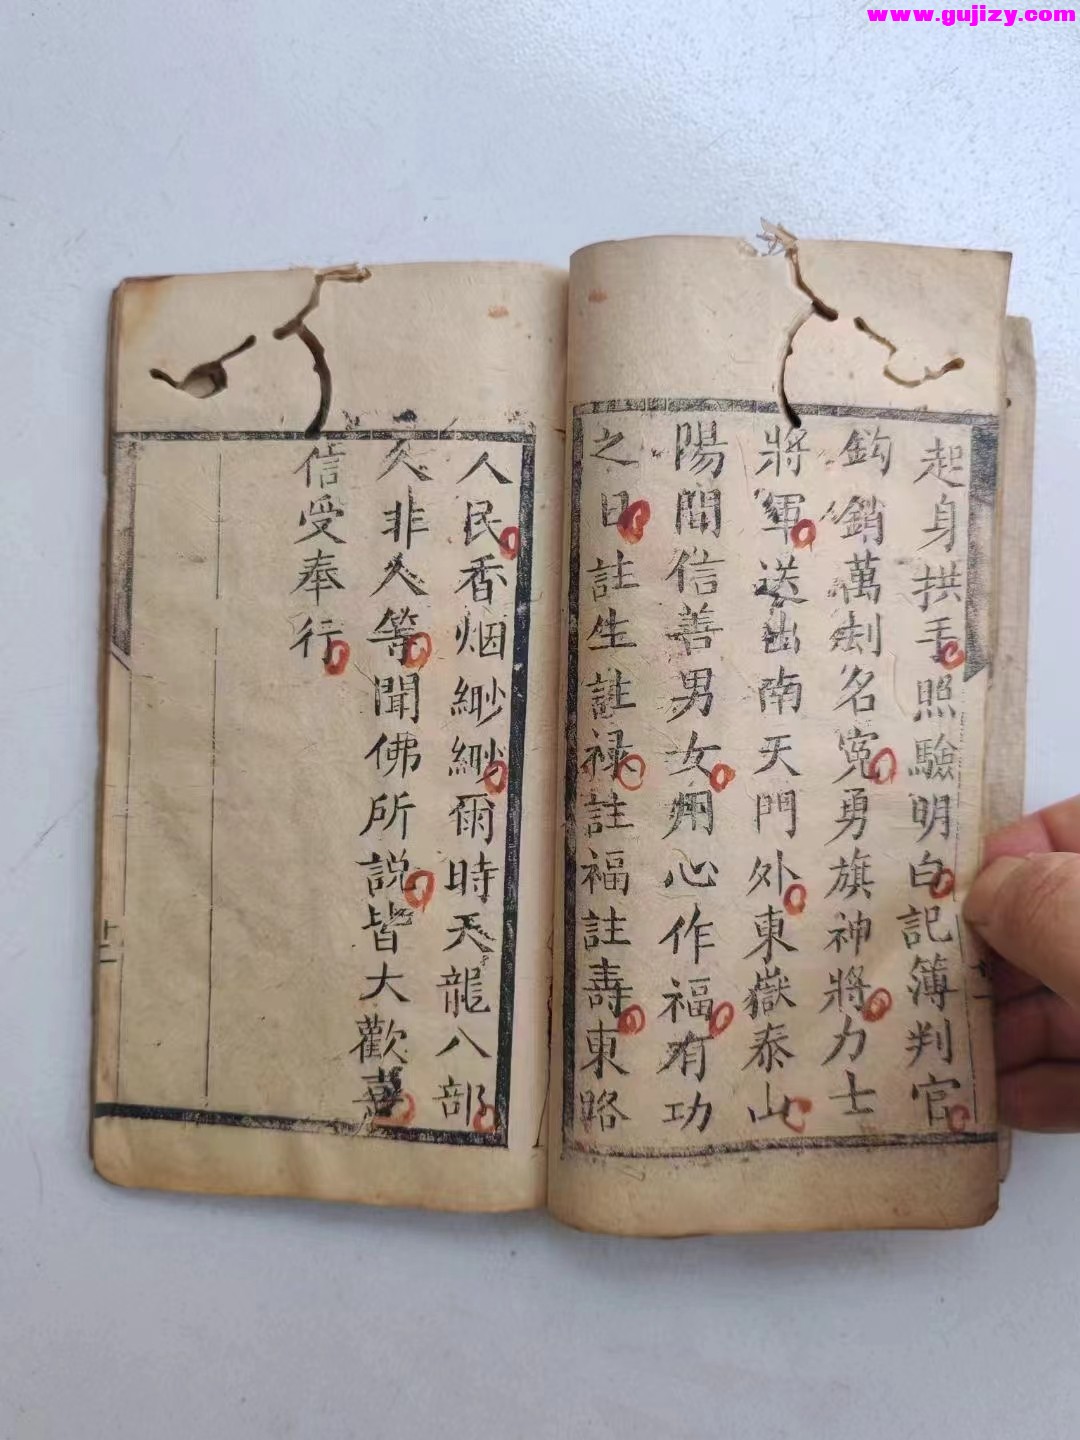 www.gujizy.com
起身拱手照驗明白記簿判官
鈎銷萬刦名寃勇旗神將力士
將軍送出南天門外東嶽泰山
陽間信善男女用心作福有功
之日註生註禄註福註壽東路
人民香烟緲緲爾時天龍八部
人非人等聞佛所説皆大歡喜
信受奉行
十一